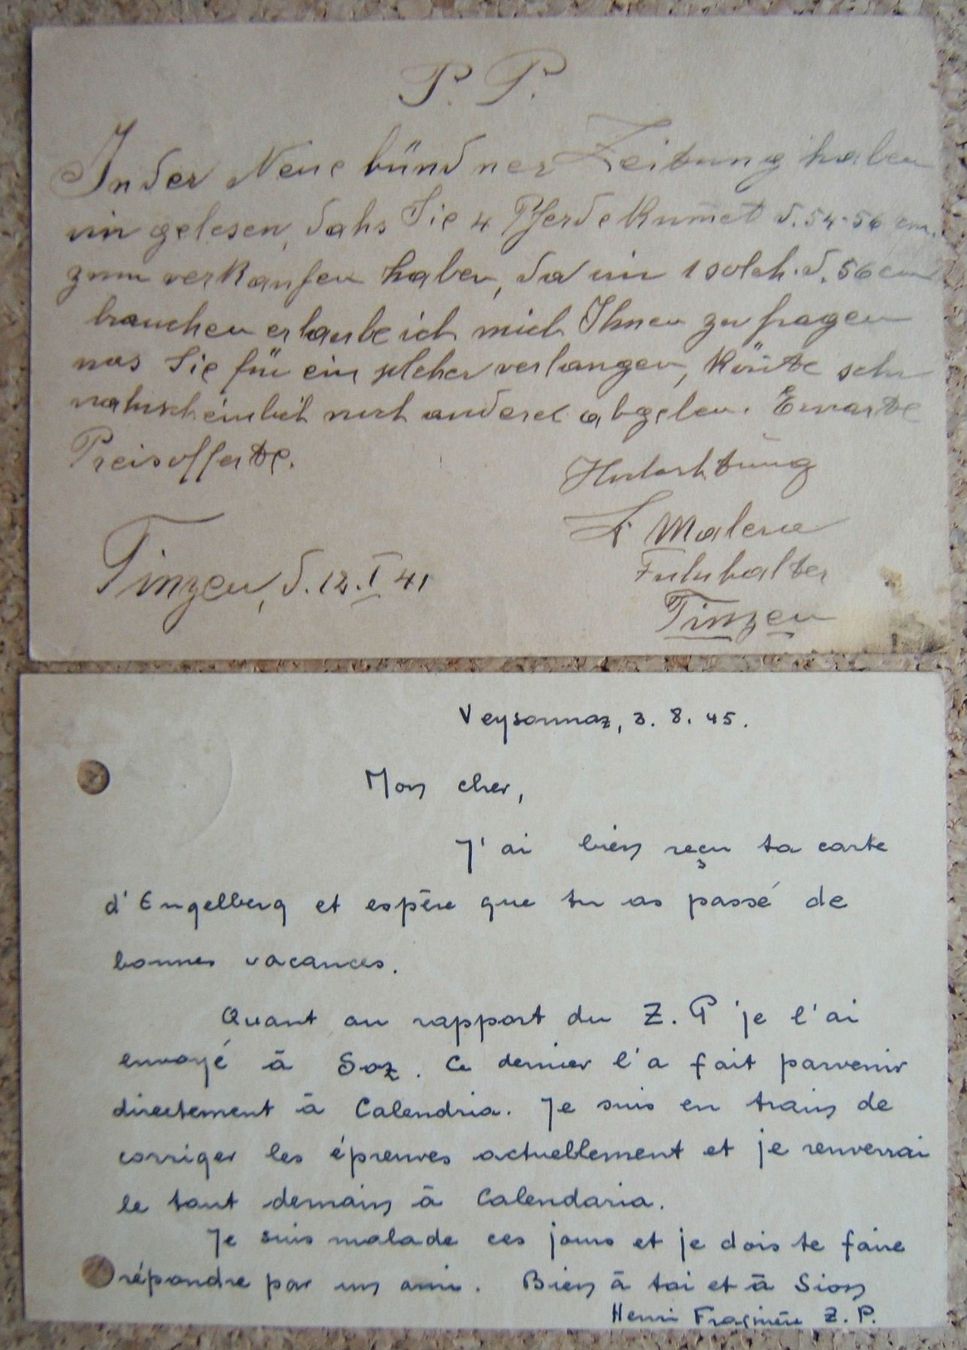 P. P.
In der Neue bündner Zeitung haben
wir gelesen, dahs Sie 4 Pferde Kumet d. 54-56 cm.
zum verkaufen haben, da wir 1 solch. d. 56 cm
brauchen erlaube ich mich Ihnen zu fragen
was Sie für ein solcher verlangen, könte sehr
wahrscheinlich noch andere abgeben. Erwarte
Preisofferte.
Hochachtung
Fuhrhalter
Tinzen
Tinzen, d. 12. I 41
Veysonnaz, 3. 8. 45.
Mon cher,
J'ai bien reçu ta carte
d'Engelberg et espère que tu as passé de
bonnes vacances.
Quant au rapport du Z. P je l'ai
envoyé à Soz. Ce dernier l'a fait parvenir
directement à Calendria. Je suis en train de
corriger les épreuves actuellement et je renverrai
le tout demain à Calendaria.
Je suis malade ces jours et je dois te faire
répondre par un ami. Bien à toi et à Sion
Henri Fragnière Z. P.